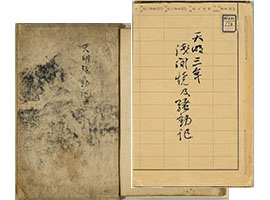 天明三年
浅間焼及騒動記
天明騒動記